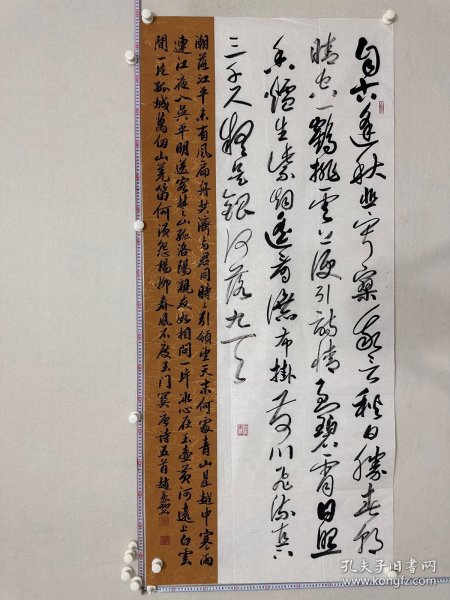 自古逢秋悲寂寞我言秋日勝春朝
晴空一鶴排雲上便引詩情到碧霄日照
香爐生紫烟遥看瀑布掛前川飛流直下
三千尺疑是銀河落九天
潮落江平未有風扁舟共濟與君同時時引領望天末何處青山是越中寒雨
連江夜入吳平明送客楚山孤洛陽親友如相問一片冰心在玉壺黄河遠上白雲
間一片孤城萬仞山羌笛何須怨楊柳春風不度玉門關唐詩五首
孔夫子旧书网
www.kongfz.com